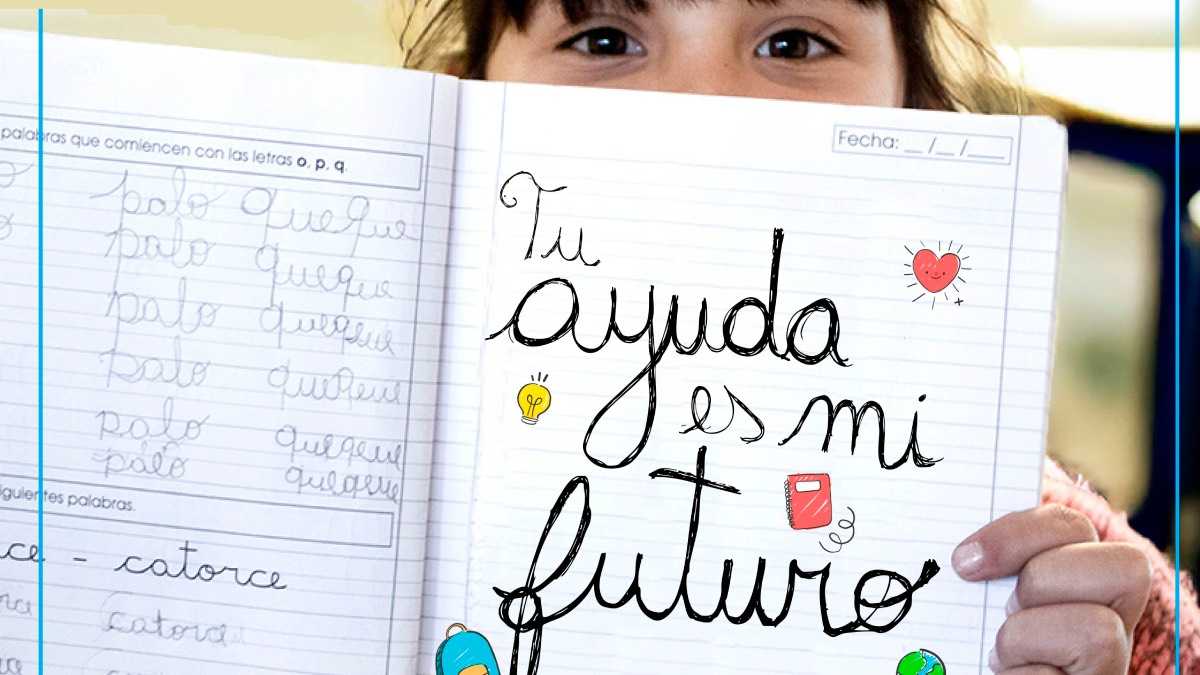 palabras que comiencen con las letras o, p, q.
palo queque
palo queque
palo queque
palo queque
palo queque
palo queque
siguientes palabras.
ce - catorce
catorce
Fecha: __/__/___
Tu
ayuda
es mi
futuro